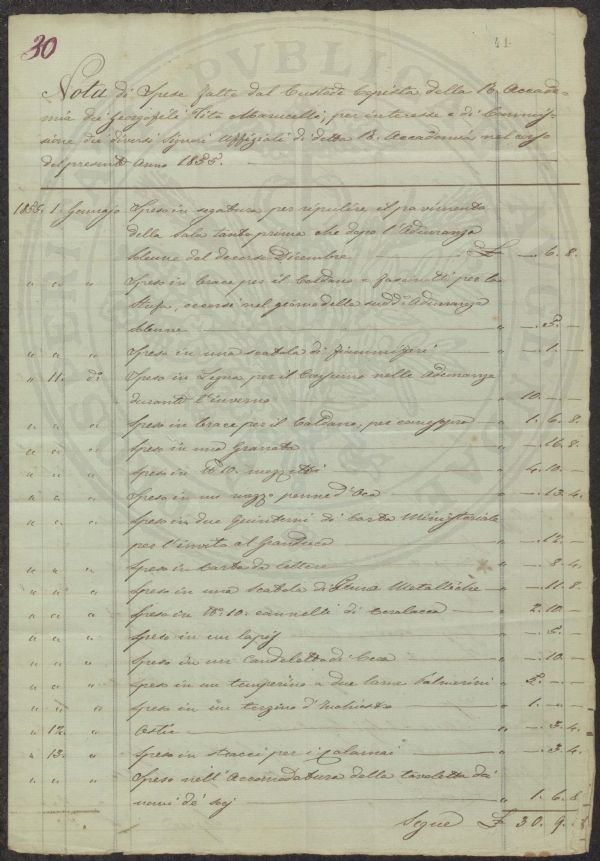 30
41
Nota di Spese fatte dal Custode Copista della R. Accade-
mia dei Georgofili Tito Marucelli, per interesse e di Commis-
sione dei diversi Signori Uffiziali di detta R. Accademia nel corso
del presente Anno 1835.
1835. 1. Gennajo Speso in segatura per ripulire il pavimento
della Sala tanto prima che dopo l'Adunanza
Solenne del decorso Dicembre £ — 6. 8.
" " " Speso in brace per il Caldano e per la
Stufa, occorsi nel giorno della sudd.a Adunanza
Solenne " —
" " " Speso in una scatola di fiammiferi " — 1. —
" 11. dº Speso in Legna per il Consumo nelle Adunanze
durante l'inverno " 10. — —
" " " Speso in brace per il Caldano, per " 1. 6. 8.
" " " Speso in una Granata " — 16. 8.
" " " Speso in Nº 10. mazzetti " 4. 10. —
" " " Speso in un mazzo penne d'Oca " — 13. 4.
" " " Speso in due Quinterni di Carta Ministeriale
per l'invito al Granduca " — 12. —
" " " Speso in Carta da Lettere " — 3. 4.
" " " Speso in una Scatola di Penne Metalliche " — 11. 8.
" " " Speso in Nº 10. cannelli di Ceralacca " 2. 10. —
" " " Speso in un lapis " — 5. —
" " " Speso in un Candeletto di Cera " — 10. —
" " " Speso in un temperino a due lame " —
" " " Speso in un d'Inchiostro " 1. — —
" 12. " Ostie " — 3. 4.
" 13. " Speso in stacci per i Calamai " — 3. 4.
" " " Speso nell'Accomodatura della tavoletta dei
nomi de' Socj " 1. 6. 8.
Segue £ 30. 9.